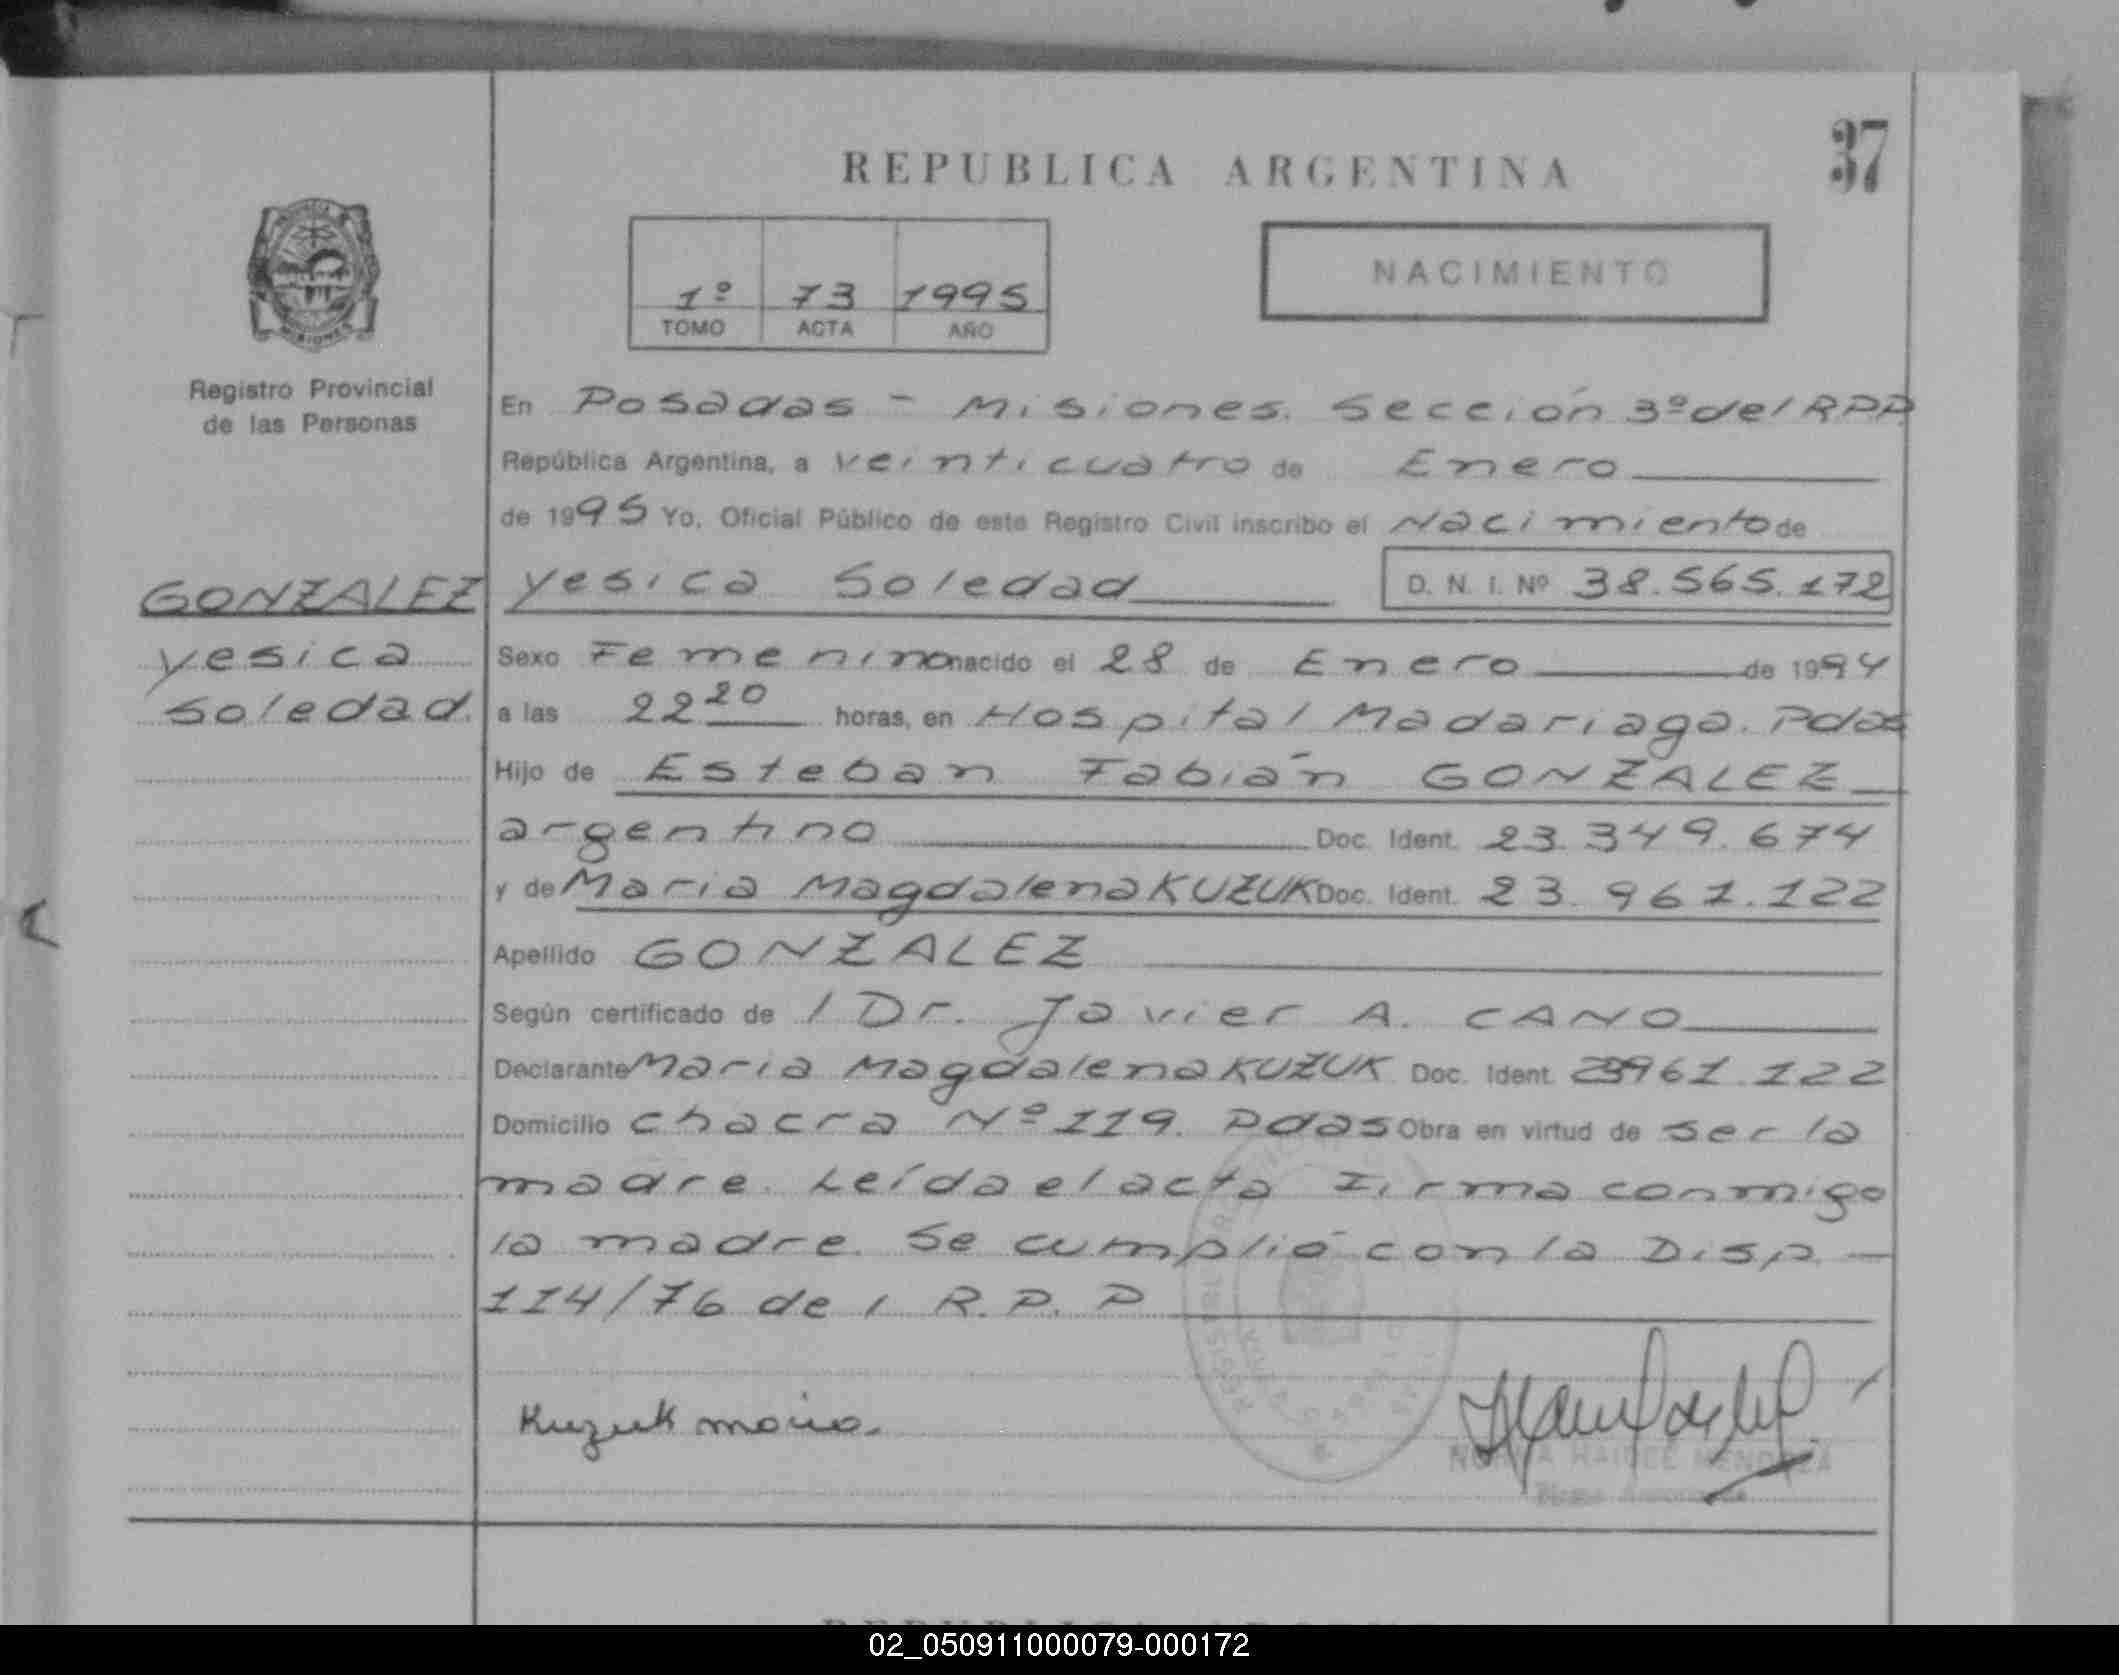 37
REPUBLICA ARGENTINA
1º 73 1995
TOMO ACTA AÑO
NACIMIENTO
Registro Provincial
de las Personas
En Posadas - Misiones. Sección 3º del R.P.P.
República Argentina, a veinticuatro de Enero
de 1995 Yo, Oficial Público de este Registro Civil inscribo el Nacimiento de
GONZALEZ
yesica
Soledad.
yesica Soledad D. N. I. Nº 38.565.172
Sexo Femenino nacido el 28 de Enero de 1994
a las 22 20 horas, en Hospital Madariaga. Pdas
Hijo de Esteban Fabián GONZALEZ
argentino Doc. Ident. 23.349.674
y de Maria Magdalena KUZUK Doc. Ident. 23.961.122
Apellido GONZALEZ
Según certificado de l Dr. Javier A. CANO
Declarante Maria Magdalena KUZUK Doc. Ident. 23961.122
Domicilio chacra Nº 119. Pdas Obra en virtud de ser la
madre. Leída el acta Firma conmigo
la madre. Se cumplió con la Disp.
114/76 del R.P.P
Kuzuk maria.
NORMA HAIDEE MENDOZA
02_050911000079-000172